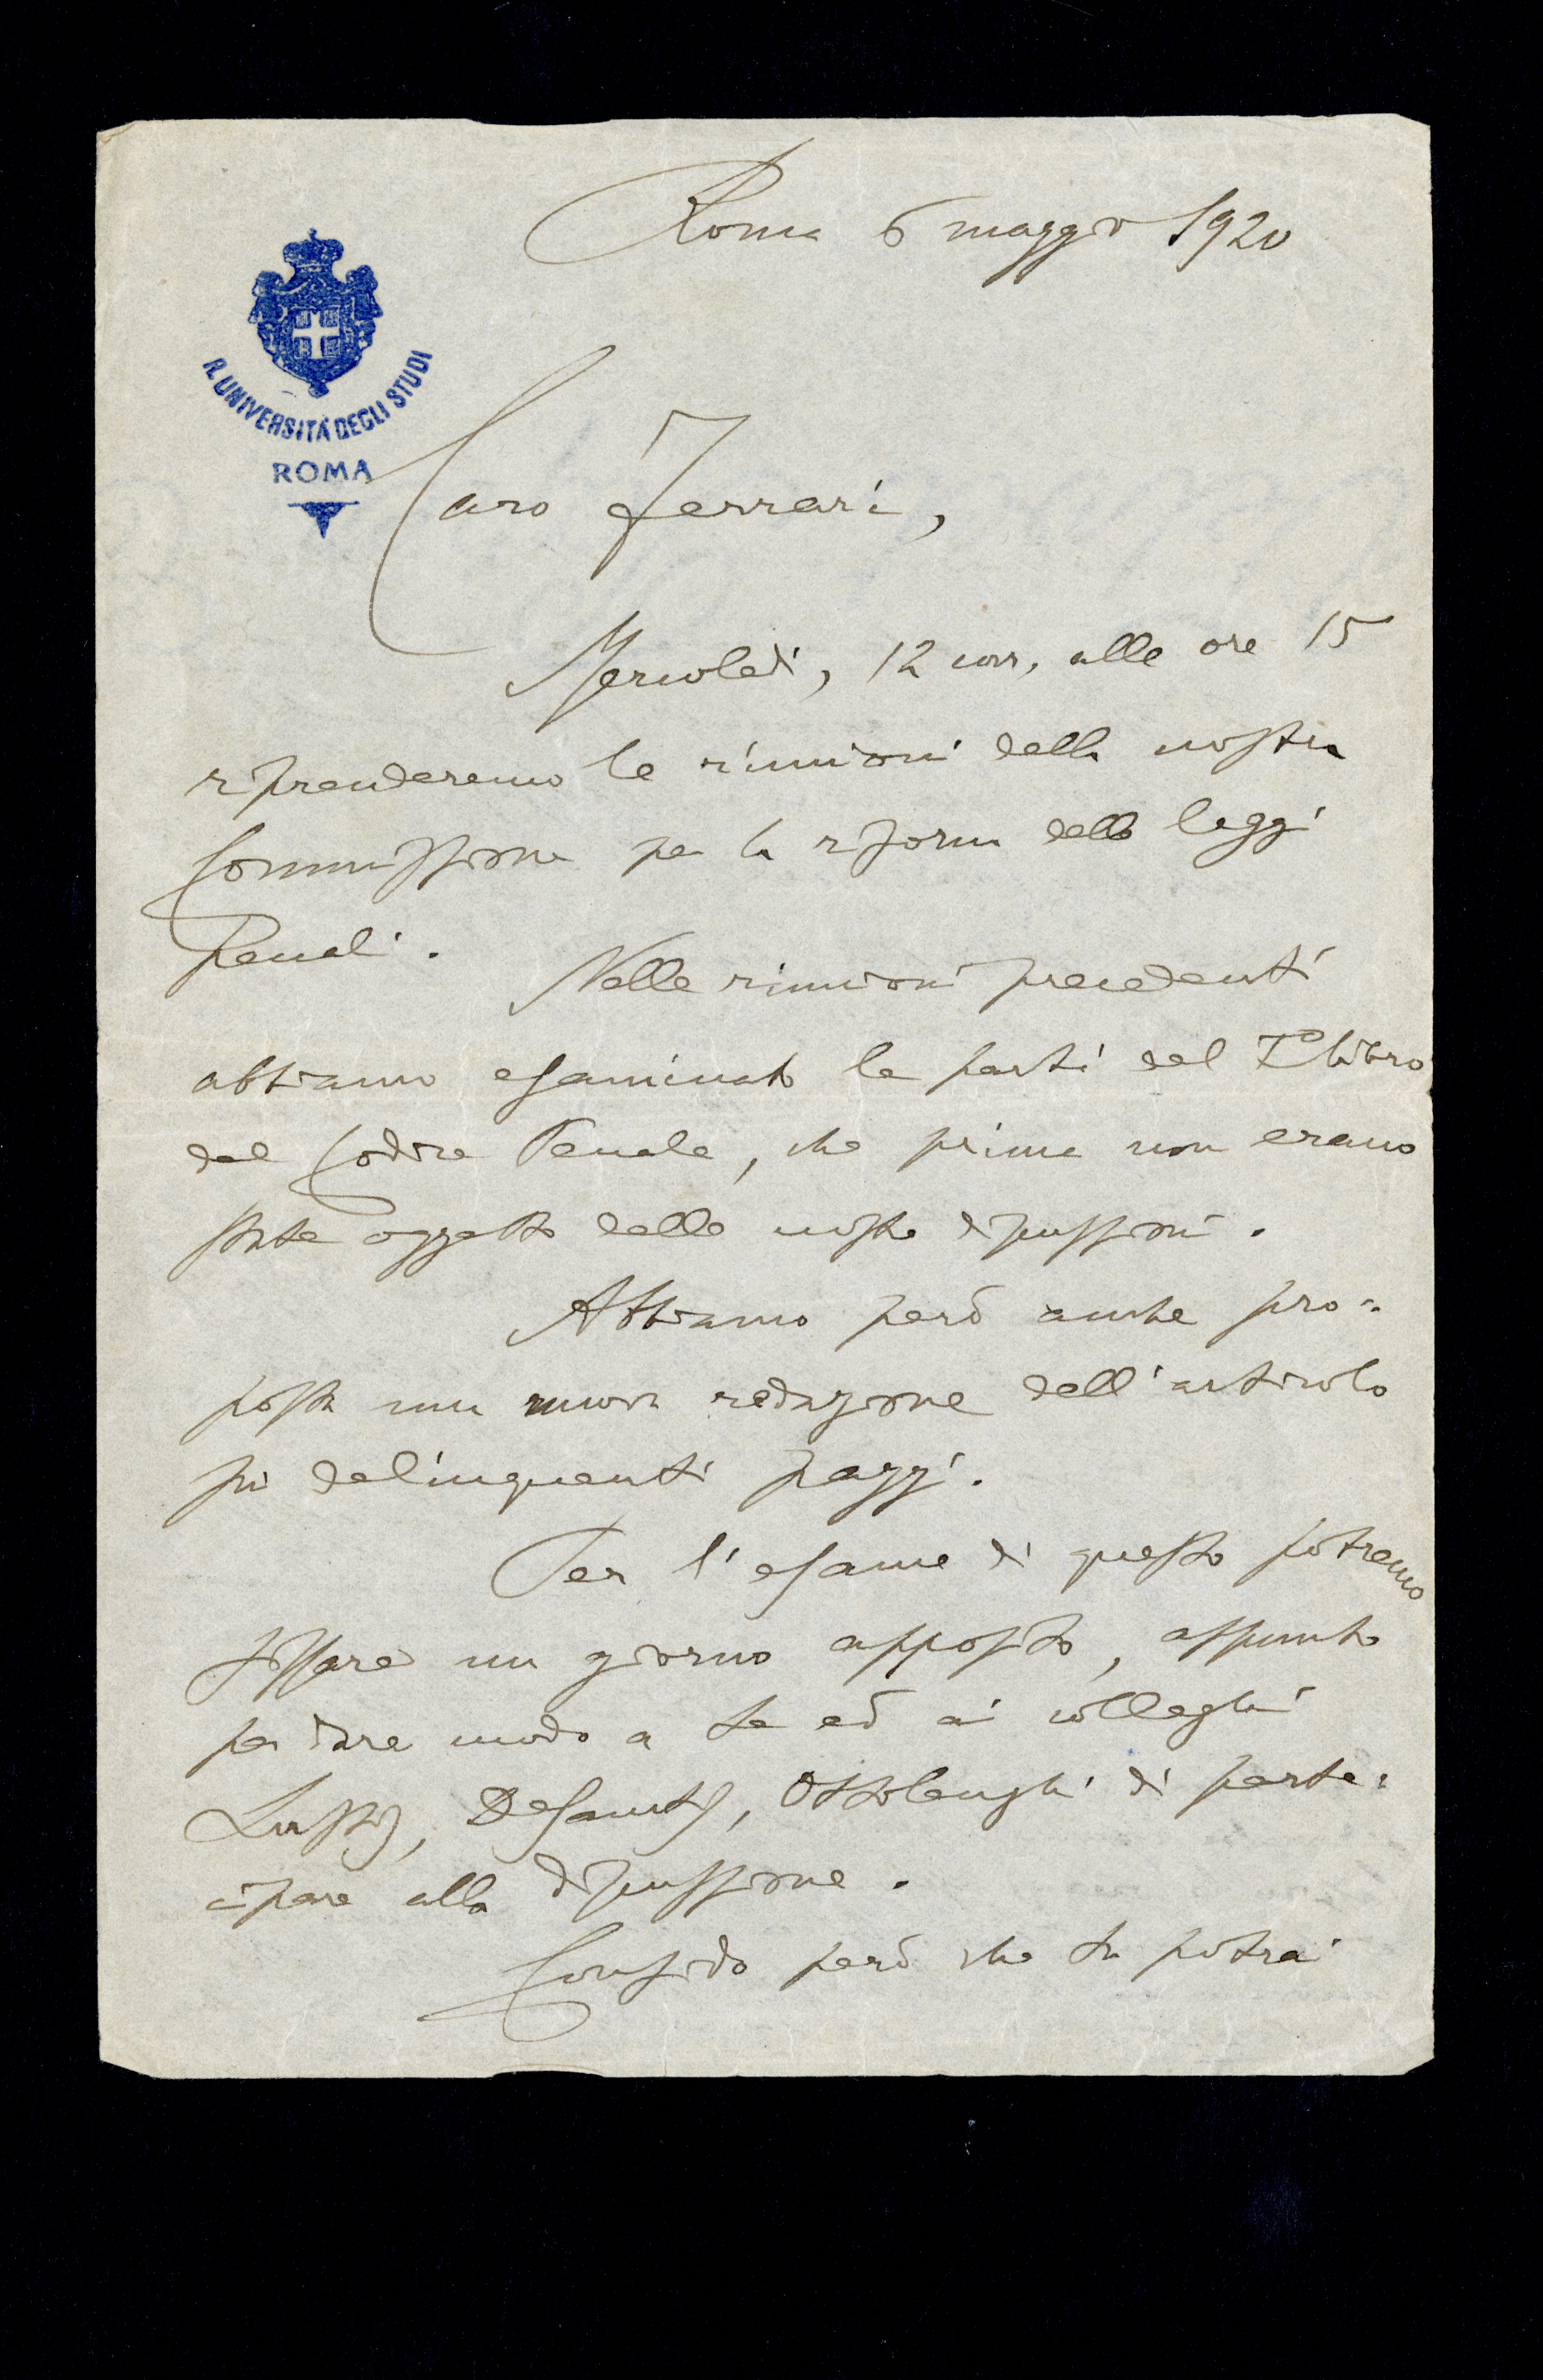 Roma 6 maggio 1920
R. UNIVERSITÀ DEGLI STUDI
ROMA
Caro Ferrari,
Mercoledì, 12 corr, alle ore 15
riprenderemo le riunioni della nostra
Commissione per la riforma delle leggi
penali.
Nelle riunioni precedenti
abbiamo esaminato le parti del I° libro
del Codice Penale, che prima non erano
state oggetto delle nostre discussioni.
Abbiamo però anche pro=
posta una nuova redazione dell'articolo
sui delinquenti pazzi.
Per l'esame di questo potremo
fissare un giorno apposito, appunto
per dare modo a te ed ai colleghi
Desanctis, Ottolenghi di parte=
cipare alla discussione.
Confido però che tu potrai